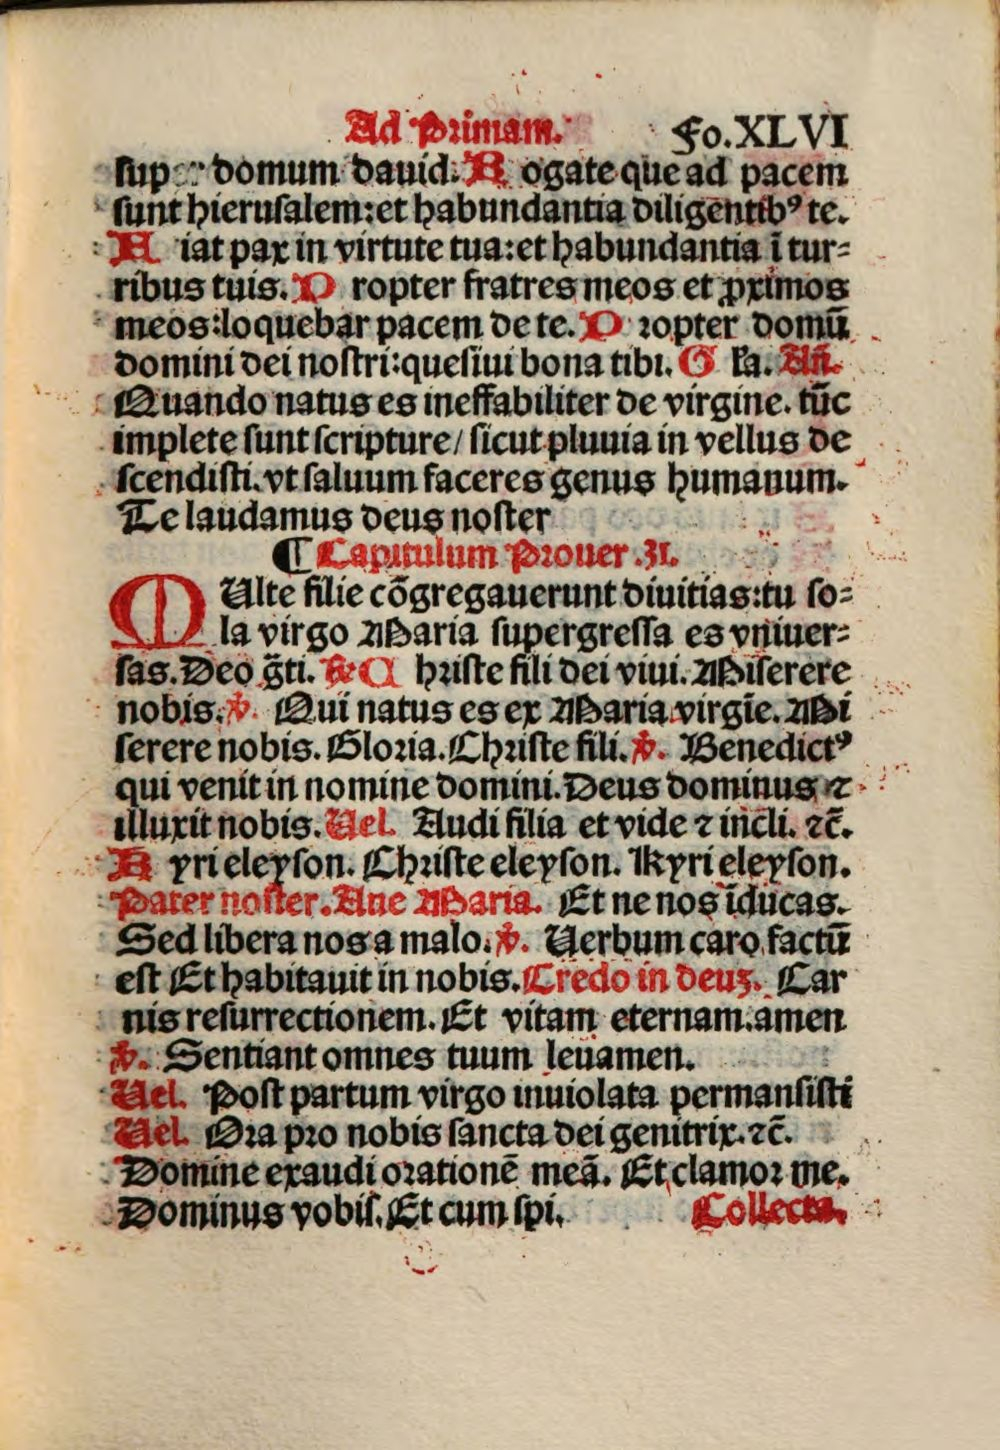 Ad Primam. Fo.XLVI
sup domum dauid. R ogate que ad pacem
sunt hierusalem:et habundantia diligentibꝰ te.
F iat pax in virtute tua:et habundantia ī tur=
ribus tuis. P ropter fratres meos et ꝓximos
meos:loquebar pacem de te. P ropter domū
domini dei nostri:quesiui bona tibi. G l'a. Añ.
Quando natus es ineffabiliter de virgine. tūc
implete sunt scripture/ sicut pluuia in vellus de
scendisti. vt saluum faceres genus humanum.
Te laudamus deus noster
¶ Capitulum Prouer .31.
MUlte filie cōgregauerunt diuitias:tu so=
la virgo Maria supergressa es vniuer=
sas. Deo g̃ti. ꝶ C hriste fili dei viui. Miserere
nobis. ℣. Qui natus es ex Maria virgīe. Mi
serere nobis. Gloria. Christe fili. ℣. Benedictꝰ
qui venit in nomine domini. Deus dominus ⁊
illuxit nobis. Uel. Audi filia et vide ⁊ incli. ⁊c̄.
K yri eleyson. Christe eleyson. Kyri eleyson.
Pater noster. Aue Maria. Et ne nos īducas.
Sed libera nos a malo. ℣. Uerbum caro factū
est Et habitauit in nobis. Credo in deuꝫ. Car
nis resurrectionem. Et vitam eternam.amen
℣. Sentiant omnes tuum leuamen.
Uel. Post partum virgo inuiolata permansisti
Uel. Ora pro nobis sancta dei genitrix. ⁊c̄.
Domine exaudi orationē meā. Et clamor me.
Dominus vobis. Et cum spi. Collecta.